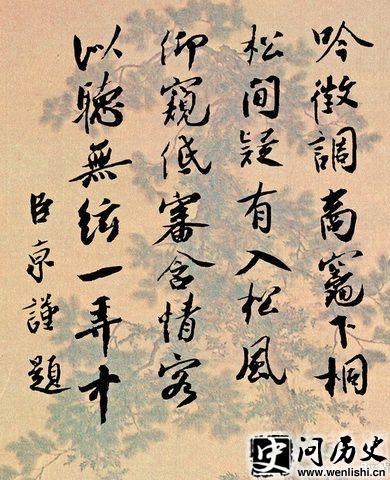 吟徵調商竈下桐
松間疑有入松風
仰窺低審含情客
似聽無絃一弄中
臣京謹題
史 问历史
www.wenlishi.cn